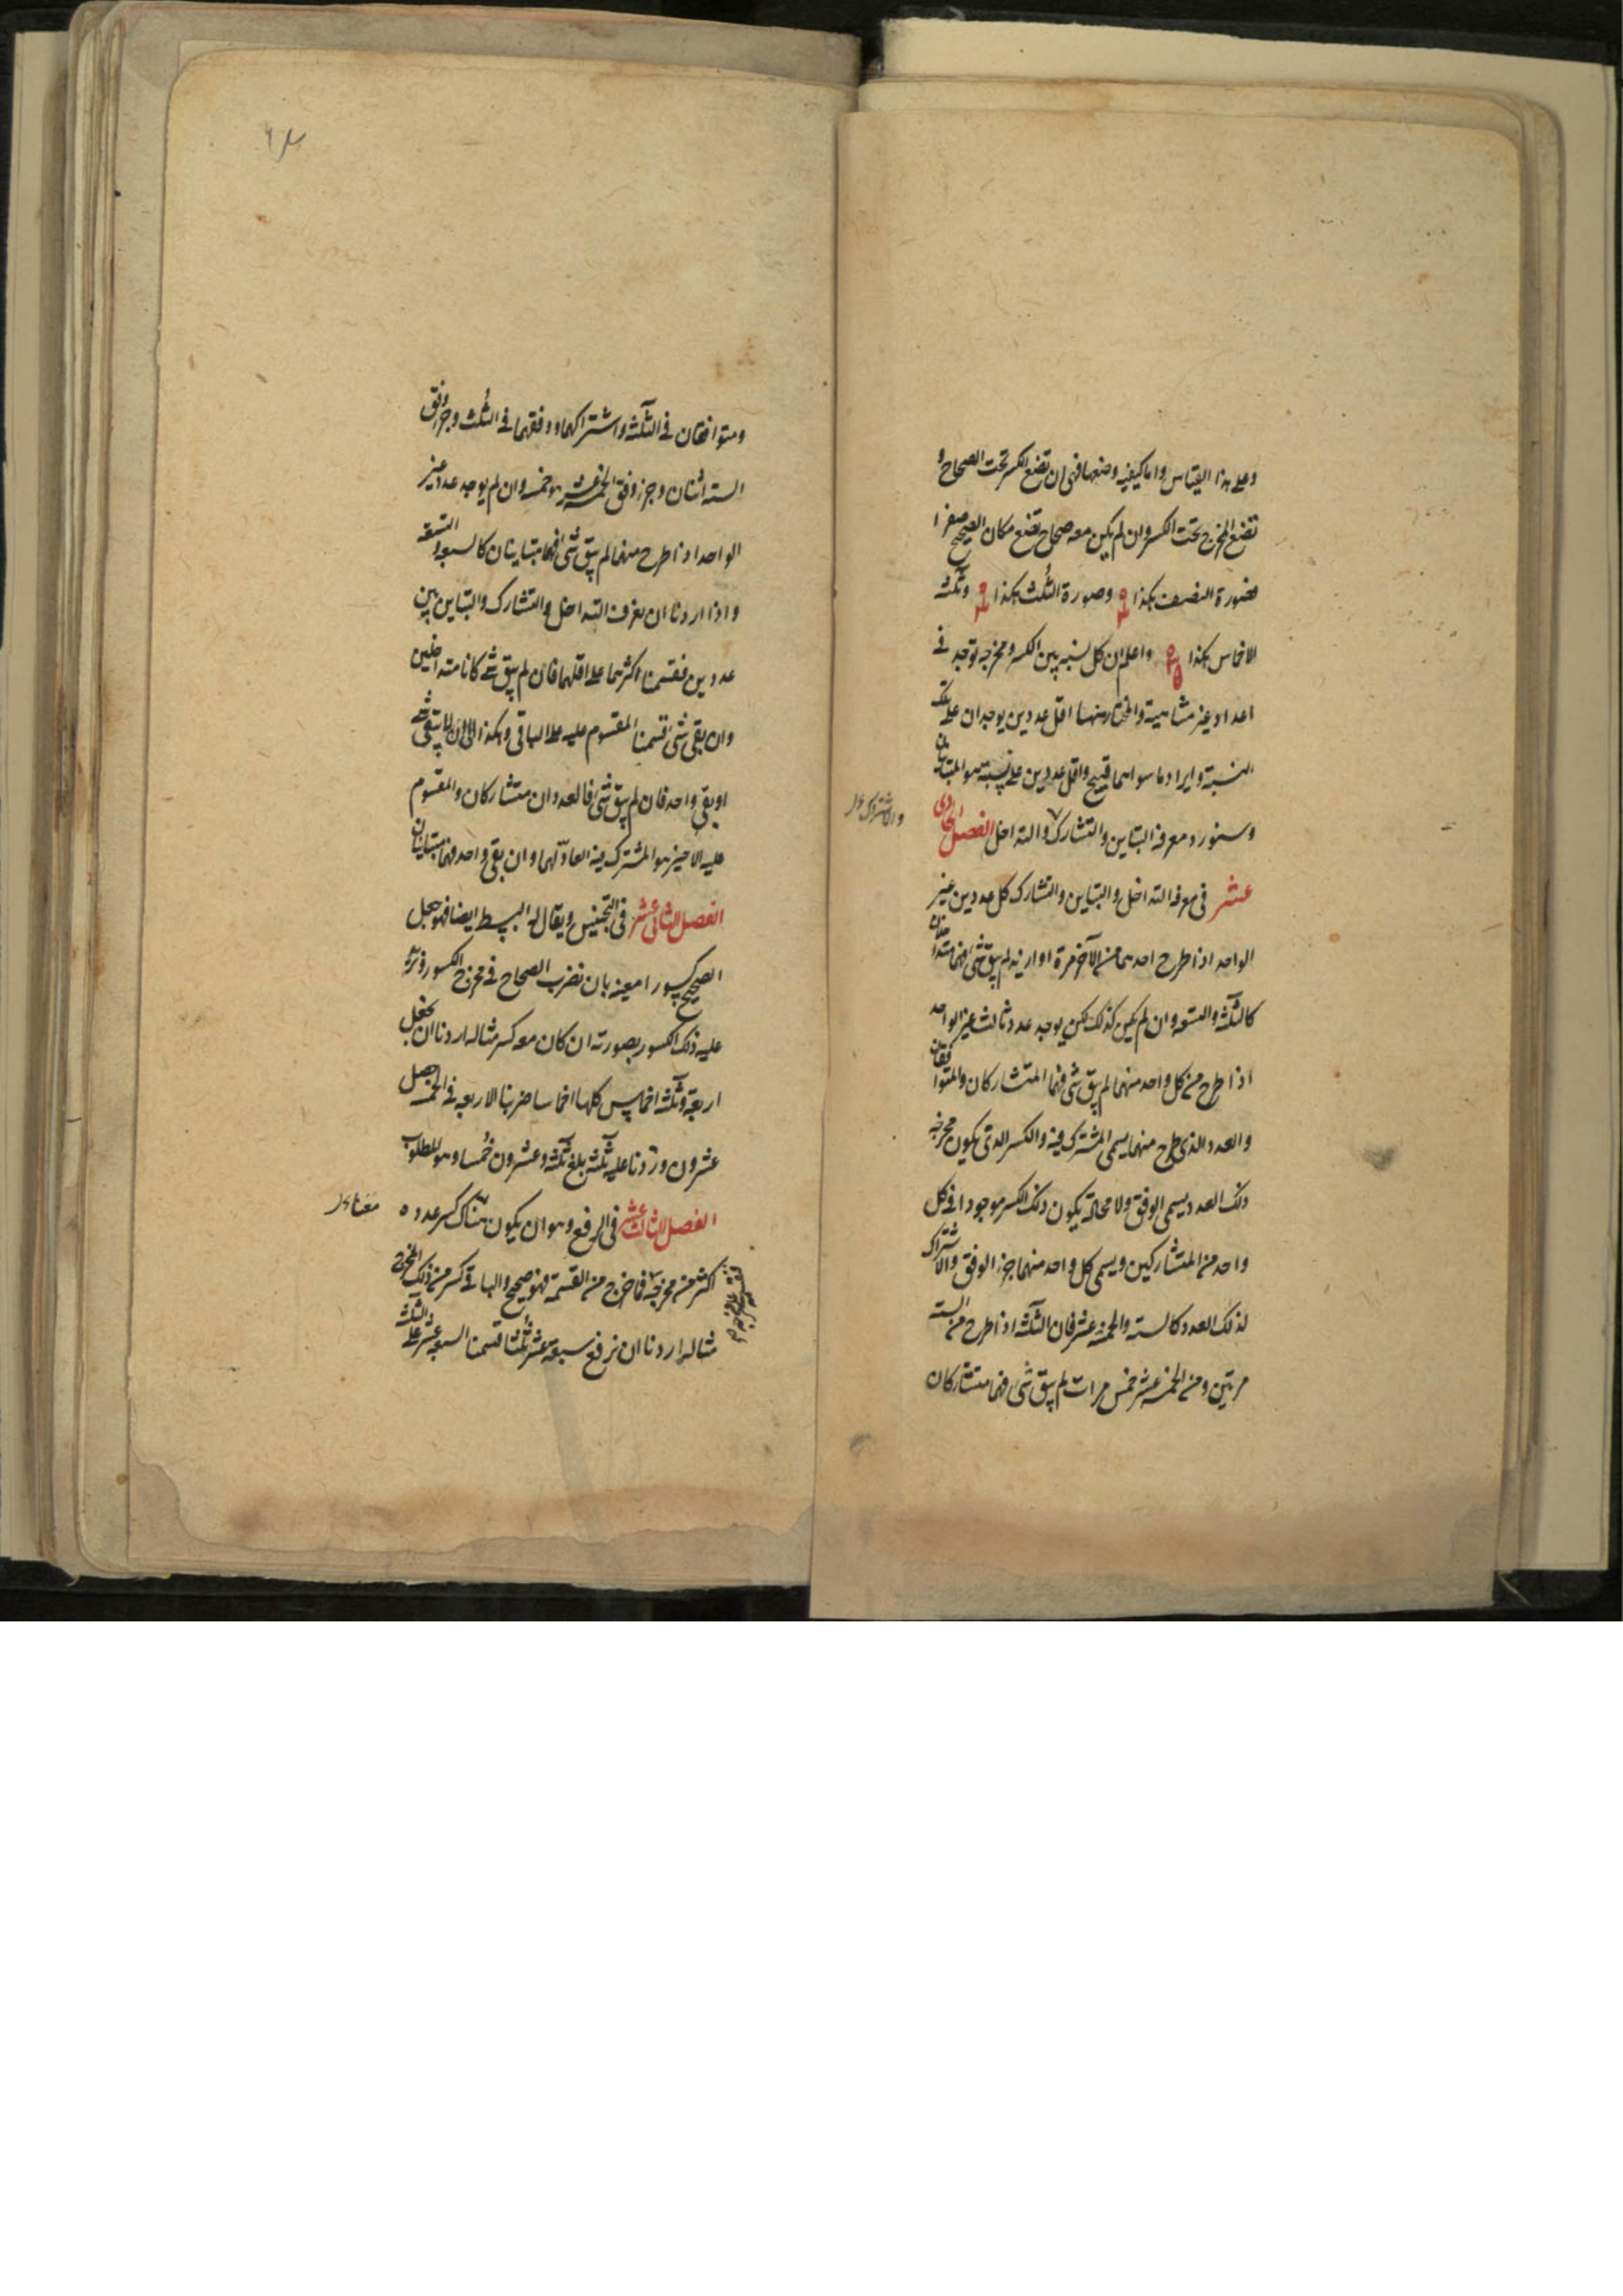 وعلى هذا القياس واما كيفية وضعها فهى ان تضع الكسر تحت الصحاح و
تضع المخرج تحت الكسر وان لم يكن معه صحاح تضع مكان الصحيح صفرا
فصورة النصف هكذا وصورة الثلث هكذا وثلثة
الاخماس هكذا واعلم ان كل نسبة بين الكسر ومخرجه توجد فى
اعداد غير متناهية والمختار منها اقل عددين يوجدان على تلك
النسبة وايراد ما سواهما قبيح واقل عددين على نسبة هما المتباينان
وسنورد معرفة التباين والتشارك والتداخل الفصل الحادى
والاشتراك
عشر فى معرفة التداخل والتباين والتشارك كل عددين غير
الواحد اذا طرح احدهما من الآخر مرة او ازيد لم يبق شئ فهما متداخلان
كالثلثة والتسعة وان لم يكن كذلك لكن يوجد عدد ثالث غير الواحد
اذا طرح من كل واحد منهما لم يبق شئ فهما المتشاركان والمتوافقان
والعدد الذى طرح منهما يسمى المشترك فيه والكسر الذى يكون مخرجه
ذلك العدد يسمى الوفق ولا محالة يكون ذلك الكسر موجودا فى كل
واحد من المتشاركين ويسمى كل واحد منهما جزء الوفق والاشتراك
لذلك العدد كالستة والخمسة عشر فان الثلثة اذا طرح من الستة
مرتين ومن الخمسة عشر خمس مرات لم يبق شئ فهما متشاركان
ومتوافقان فى الثلثة واشتراكهما ووفقهما فى الثلث وجزء وفق
الستة اثنان وجزء وفق الخمسة عشر هو خمسة وان لم يوجد عدد غير
الواحد اذا طرح منهما لم يبق شئ فهما متباينان كالسبعة والتسعة
واذا اردنا ان نعرف التداخل والتشارك والتباين بين
عددين فقسمنا اكثرهما على اقلهما فان لم يبق شئ كانا متداخلين
وان بقى شئ قسمنا المقسوم عليه على الباقى وهكذا الى ان لا يبقى شئ
او بقى واحد فان لم يبق شئ فالعددان متشاركان والمقسوم
عليه الاخير هو المشترك فيه العاد لهما وان بقى واحد فهما متباينان
الفصل الثانى عشر فى التجنيس ويقال له البسط ايضا فهو جعل
الصحيح كسورا معينة بان نضرب الصحاح فى مخرج الكسور ونزيد
عليه ذلك الكسور بصورته ان كان معه كسر مثاله اردنا ان نجعل
اربعة وثلثة اخماس كلها اخماسا ضربنا الاربعة فى الخمسة حصل
عشرون وزدنا عليه ثلثة بلغ ثلثة وعشرون خُمسا وهو المطلوب
الفصل الثالث عشر فى الرفع وهو ان يكون هناك كسر عدده
اكثر من مخرجه فما خرج من القسمة فهو صحيح والباقى كسر من ذلك المخرج
مثاله اردنا ان نرفع سبعة عشر ثُلثا قسمنا السبعة عشر على الثلثة